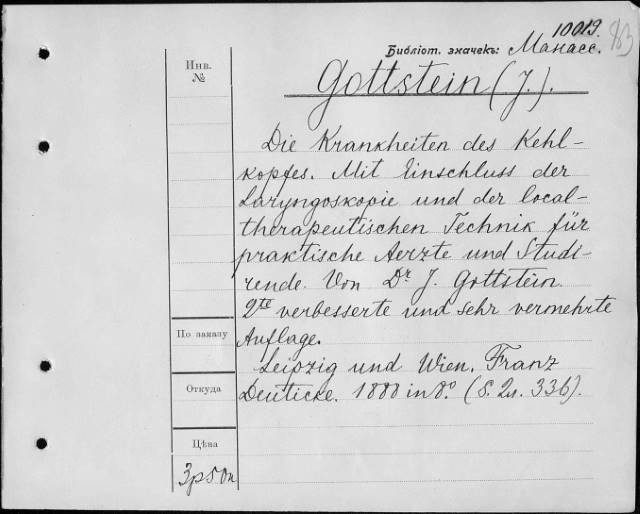 10019.
83
Библіот. значекъ: Манасс.
Инв.
№
Gottstein (J.).
Die Krankheiten des Kehl-
kopfes. Mit Einschluss der
Laryngoskopie und der local-
therapeutischen Technik für
praktische Aerzte und Studi-
rende. Von Dr J. Gottstein
2te verbesserte und sehr vermehrte
Auflage.
Leipzig und Wien. Franz
Deuticke. 1888 in 8.° (S. 2л. 336).
По заказу
Откуда
Цѣна
3р50к